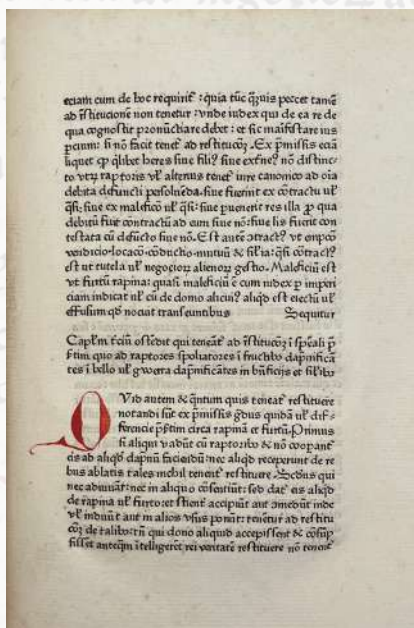 eciam cum de hoc requirit᷑ : quia tūc q̄uis peccet tamē
ad r̄stitucionē non tenetur : vnde iudex qui de ea re de
qua cognoscit pronūciare debet : et sic maīfestare ius
p̱cium : si nō facit tenet᷑ ad restitucōꝫ . Ex p̄missis eciā
liquet ꝙ q̄libet heres siue fili⁹ siue extne⁹ nō distinc
to vtꝝ raptoris ul̄ alterius tenet᷑ iure canonico ad oīa
debita defuncti persoluēda . siue fuerint ex cōtractu ul̄
q̄si : siue ex malefico ul̄ q̄si : siue puenerit res illa ꝓ qua
debitū fuit contractū ad eum siue nō : siue lis fuerit con
testata cū defūcto siue nō . Est autē ↄtract⁹ vt empcō
vendicio - locacō - cōductio - mutuū & sīlīa : q̄si cōtract⁹
est ut tutela ul̄ negocioꝝ alienoꝝ gestio . Maleficiū est
vt furtū rapina : quasi maleficiū ē cum iudex ꝑ imperi
ciam iudicat ul̄ cū de domo alicui⁹ aliqd est eiectū ul̄
effusum qd nocuit transeuntibus Sequitur
Capl̄m t̄ciū ostēdit qui teneāt᷑ ad r̄stitucōꝫ ī sp̄eali p̄
s̄tim quo ad raptores spoliatores ī fructibꝰ dāpnificā
tes ī bello ul̄ gwerra dāpnificātes in b̄nficijs et sīlibꝰ
Qvid autem & q̄ntum quis teneat᷑ restituere
notandi sūt ex p̄missis gdus quidā ul̄ dif-
ferencie p̄stim circa rapinā et furtū . Primus
si aliqui vadūt cū raptoribꝰ & nō cooꝑant᷑
eis ad aliqd dāpnū faciēdū : nec aliqd receperunt de re
bus ablatis tales nichil tenent᷑ restituere . Scdus qui
nec adiuuāt : nec in aliquo cōsentiūt : sed dat᷑ eis aliqd
de rapina ul̄ furto : et scient᷑ accipiūt aut comedūt inde
ul̄ induūt aut in alios vsus ponūt : tenētur ad restitu
cōꝫ de talibꝰ : tn̄ qui dono aliquid accepissent & cōsūp
sisset anteq̄m ītelligeret rei veritatē restituere nō tenet᷑